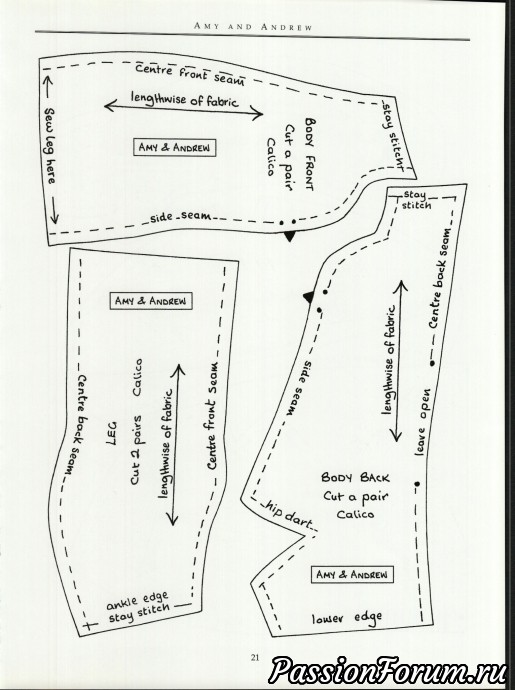 AMY AND ANDREW
Centre front seam
lengthwise of fabric
Sew leg here
AMY & ANDREW
BODY FRONT
Cut a pair
Calico
stay stitch
side seam
stay
stitch
Centre back seam
lengthwise of fabric
side seam
leave open
BODY BACK
Cut a pair
Calico
hip dart
AMY & ANDREW
lower edge
AMY & ANDREW
Centre back seam
LEG
Cut 2 pairs Calico
lengthwise of fabric
Centre front seam
ankle edge
stay stitch
21
PassionForum.ru